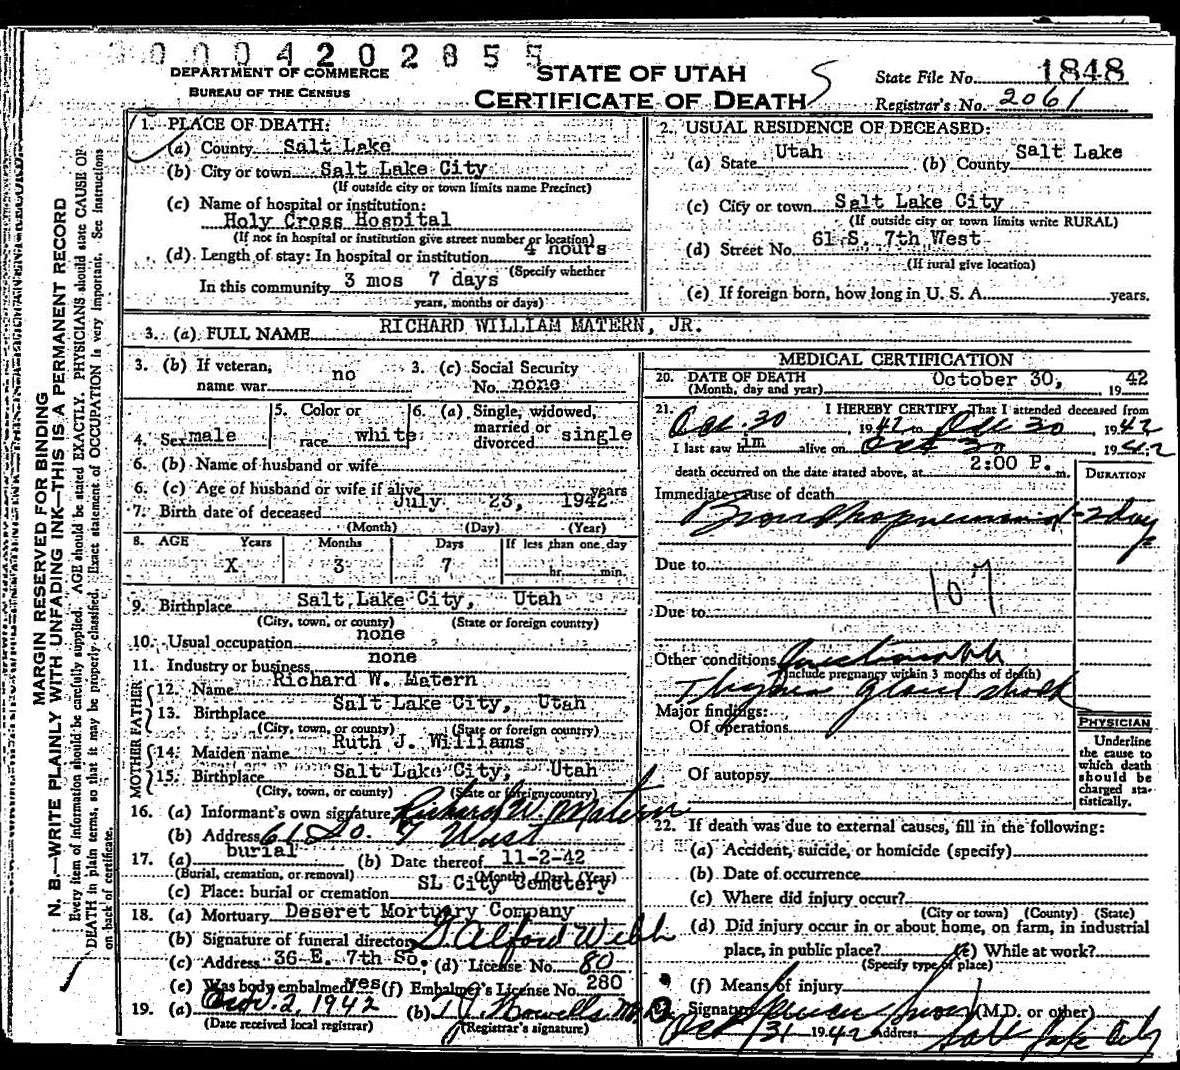 0004202855
DEPARTMENT OF COMMERCE
BUREAU OF THE CENSUS
STATE OF UTAH
CERTIFICATE OF DEATH
State File No. 1848
Registrar's No. 2061
1. PLACE OF DEATH:
(a) County Salt Lake
(b) City or town Salt Lake City
(If outside city or town limits name Precinct)
(c) Name of hospital or institution:
Holy Cross Hospital
(If not in hospital or institution give street number or location)
(d) Length of stay: In hospital or institution 4 hours
(Specify whether
In this community 3 mos 7 days
years, months or days)
2. USUAL RESIDENCE OF DECEASED:
(a) State Utah (b) County Salt Lake
(c) City or town Salt Lake City
(If outside city or town limits write RURAL)
(d) Street No. 61 S. 7th West
(If rural give location)
(e) If foreign born, how long in U. S. A. years.
3. (a) FULL NAME RICHARD WILLIAM MATERN, JR.
3. (b) If veteran, name war no
3. (c) Social Security No. none
4. Sex male
5. Color or race white
6. (a) Single, widowed, married or divorced single
6. (b) Name of husband or wife
6. (c) Age of husband or wife if alive years
7. Birth date of deceased July 23, 1942
(Month) (Day) (Year)
8. AGE Years Months Days If less than one day
X 3 7 hr. min.
9. Birthplace Salt Lake City, Utah
(City, town, or county) (State or foreign country)
10. Usual occupation none
11. Industry or business none
FATHER
12. Name Richard W. Matern
13. Birthplace Salt Lake City, Utah
(City, town, or county) (State or foreign country)
MOTHER
14. Maiden name Ruth J. Williams
15. Birthplace Salt Lake City, Utah
(City, town, or county) (State or foreign country)
16. (a) Informant's own signature Richard W. Matern
(b) Address 61 So. 7 West
17. (a) burial (b) Date thereof 11-2-42
(Burial, cremation, or removal) (Month) (Day) (Year)
(c) Place: burial or cremation SL City Cemetery
18. (a) Mortuary Deseret Mortuary Company
(b) Signature of funeral director G. Alford Webb
(c) Address 36 E. 7th So. (d) License No. 80
(e) Was body embalmed yes (f) Embalmer's License No. 280
19. (a) Nov. 2, 1942 (b) M.D.
(Date received local registrar) (Registrar's signature)
MEDICAL CERTIFICATION
20. DATE OF DEATH October 30, 1942
(Month, day and year)
21. I HEREBY CERTIFY, That I attended deceased from
Oct. 30, 1942 to Oct 30, 1942
I last saw him alive on Oct 30 1942
death occurred on the date stated above, at 2:00 P. m.
DURATION
Immediate cause of death
Bronchopneumonia 1-2 day
Due to
107
Due to
Other conditions Questionable
(Include pregnancy within 3 months of death)
Thymus gland shock
Major findings:
Of operations
Of autopsy
PHYSICIAN
Underline the cause to which death should be charged statistically.
22. If death was due to external causes, fill in the following:
(a) Accident, suicide, or homicide (specify)
(b) Date of occurrence
(c) Where did injury occur?
(City or town) (County) (State)
(d) Did injury occur in or about home, on farm, in industrial
place, in public place? (e) While at work?
(Specify type of place)
(f) Means of injury
Signature (M.D. or other)
Oct 31 1942 Address Salt Lake City
MARGIN RESERVED FOR BINDING
N. B.—WRITE PLAINLY WITH UNFADING INK—THIS IS A PERMANENT RECORD
Every item of information should be carefully supplied. AGE should be stated EXACTLY. PHYSICIANS should state CAUSE OF
DEATH in plain terms, so that it may be properly classified. Exact statement of OCCUPATION is very important. See Instructions
on back of certificate.